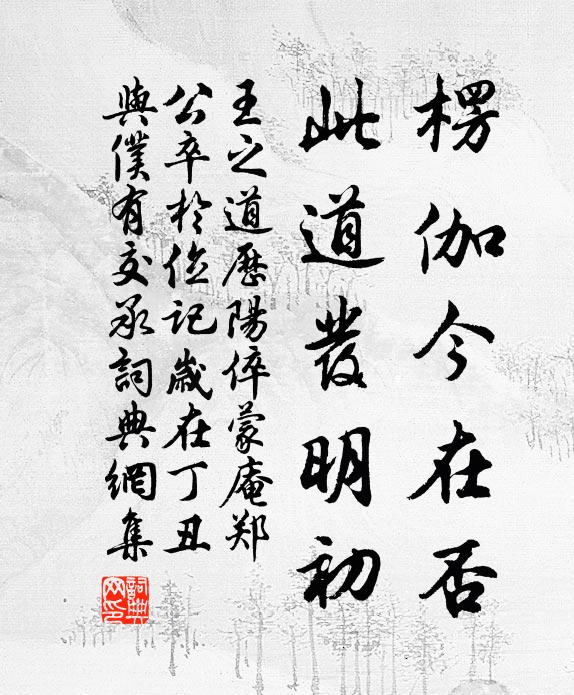 楞伽今在否
此道发明初
王之道历阳倅蒙庵郑
公卒于位记岁在丁丑
与仆有交承词典网集
词典网印